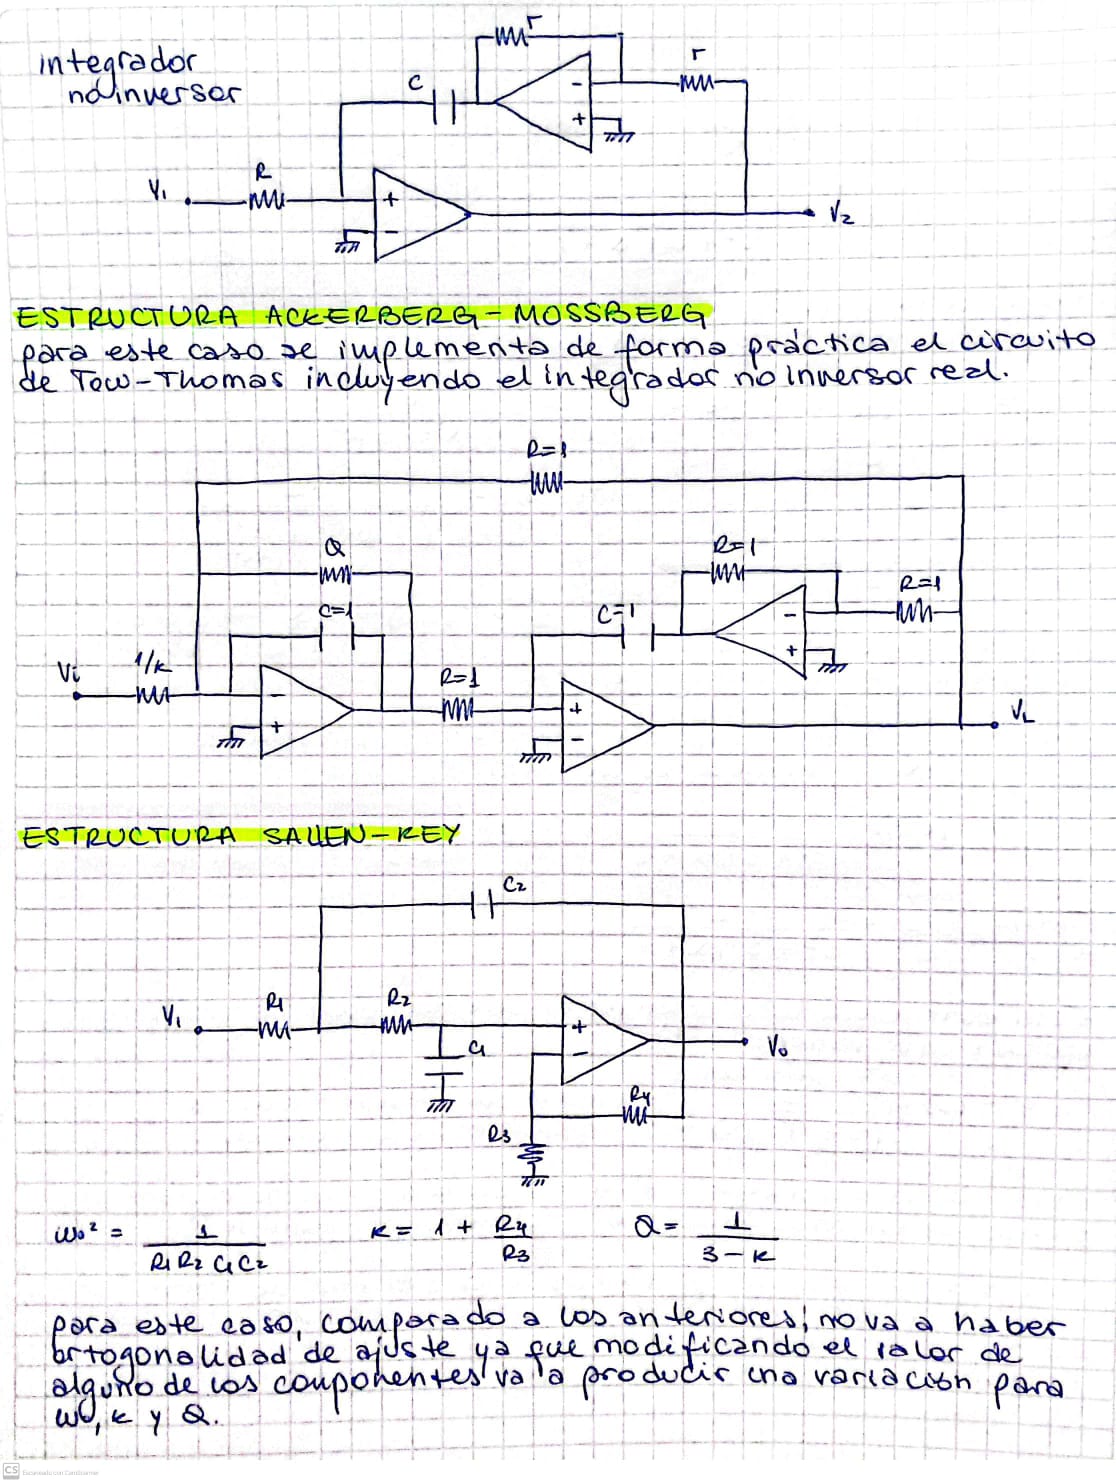 integrador
no inversor
r
r
C
-
+
R
V1
+
-
V2
ESTRUCTURA ACKERBERG-MOSSBERG
para este caso se implementa de forma práctica el circuito
de Tow-Thomas incluyendo el integrador no inversor real.
R=1
Q
R=1
R=1
C=1
C=1
-
+
Vi
1/k
R=1
-
+
+
-
VL
ESTRUCTURA SALLEN-KEY
C2
V1
R1
R2
+
-
C1
Vo
R4
R3
ωo² = 1 / R1 R2 C1 C2
k = 1 + R4 / R3
Q = 1 / 3 - k
para este caso, comparado a los anteriores, no va a haber
ortogonalidad de ajuste ya que modificando el valor de
alguno de los componentes va a producir una variación para
ωo, k y Q.
CS
Escaneado con CamScanner